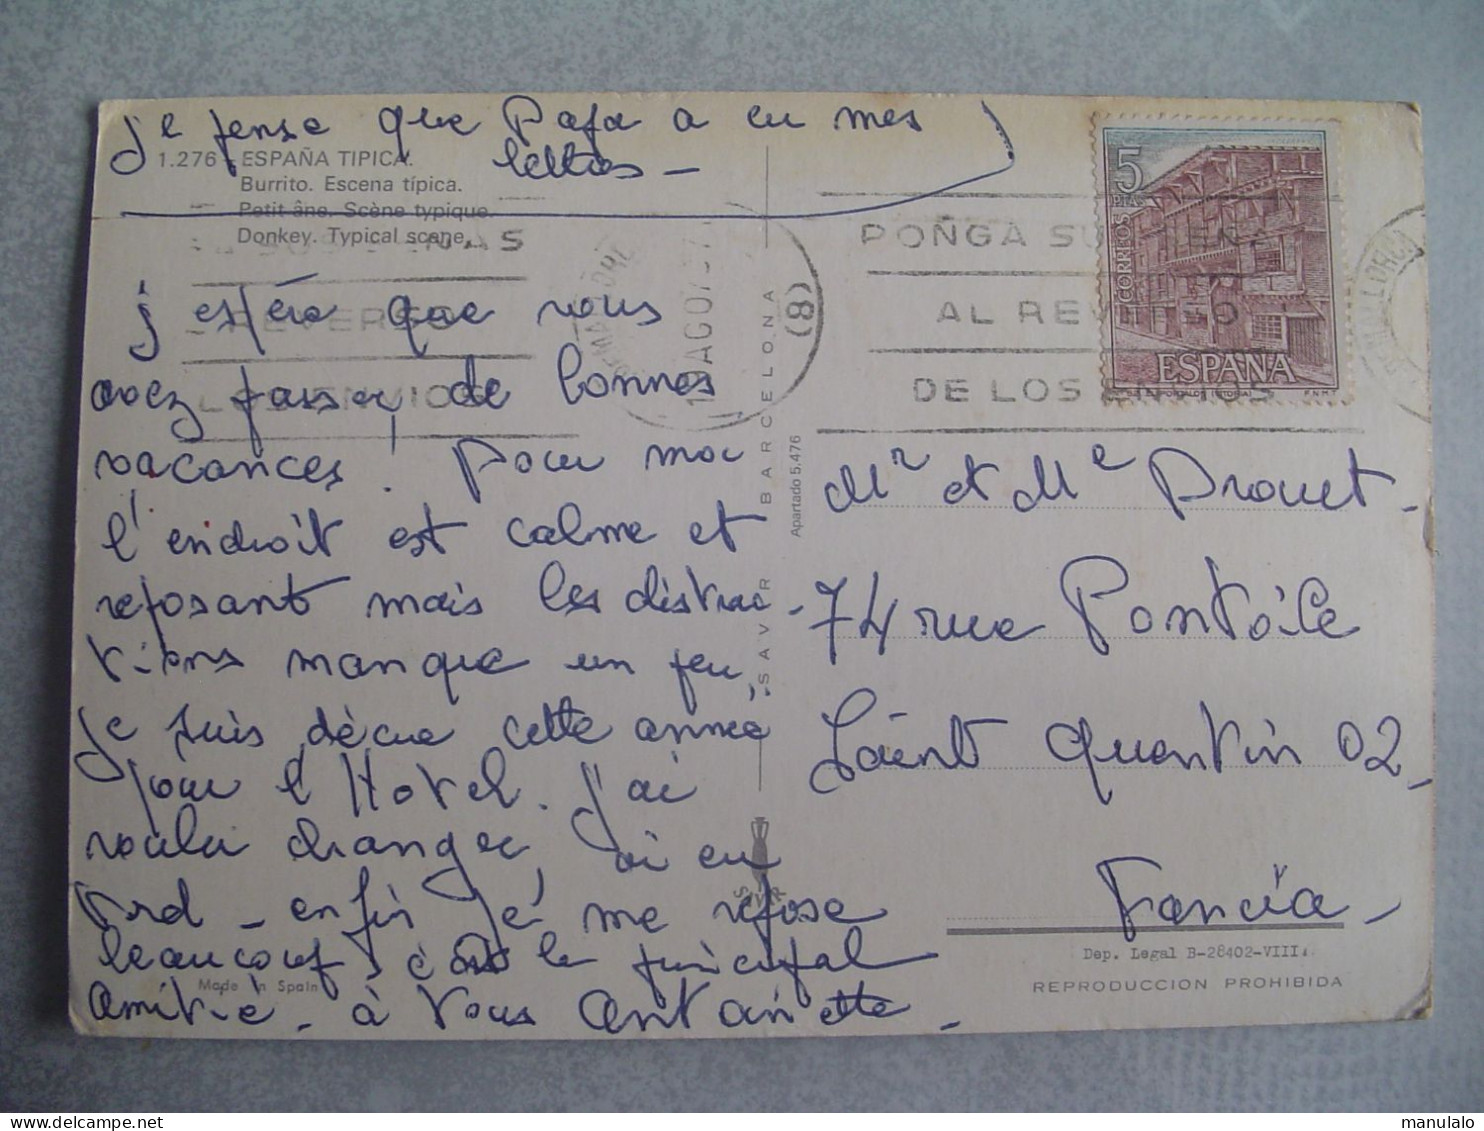 je pense que Papa a eu mes
lettres -
1.276 - ESPAÑA TIPICA.
Burrito. Escena típica.
Petit âne. Scène typique.
Donkey. Typical scene.
j'espère que vous
avez passer de bonnes
vacances! Pour moi
l'endroit est calme et
reposant mais les distrac-
tions manque un peu,
je suis déçue cette année
pour l'Hotel. J'ai
voulu changer, j'ai eu
enfin je me repose
beaucoup, c'est le principal
amitié - à vous Antoinette -
Made in Spain
SAVIR BARCELONA
Apartado 5.476
SAVIR
(8)
AGO
REVERSO
PONGA SUS SEÑAS
AL REVERSO
DE LOS ENVIOS
MALLORCA
5
PTA
CORREOS
ESPAÑA
Mr et Me Prouet.
74 rue Pontoile
Saint Quentin 02 -
Francia -
Dep. Legal B-28402-VIII
REPRODUCCION PROHIBIDA
www.delcampe.net
manulalo